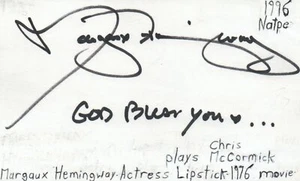 1996
Natpe
Margaux Hemingway
GOD Bless You ...
Chris
plays McCormick
Margaux Hemingway-Actress Lipstick-1976 movie